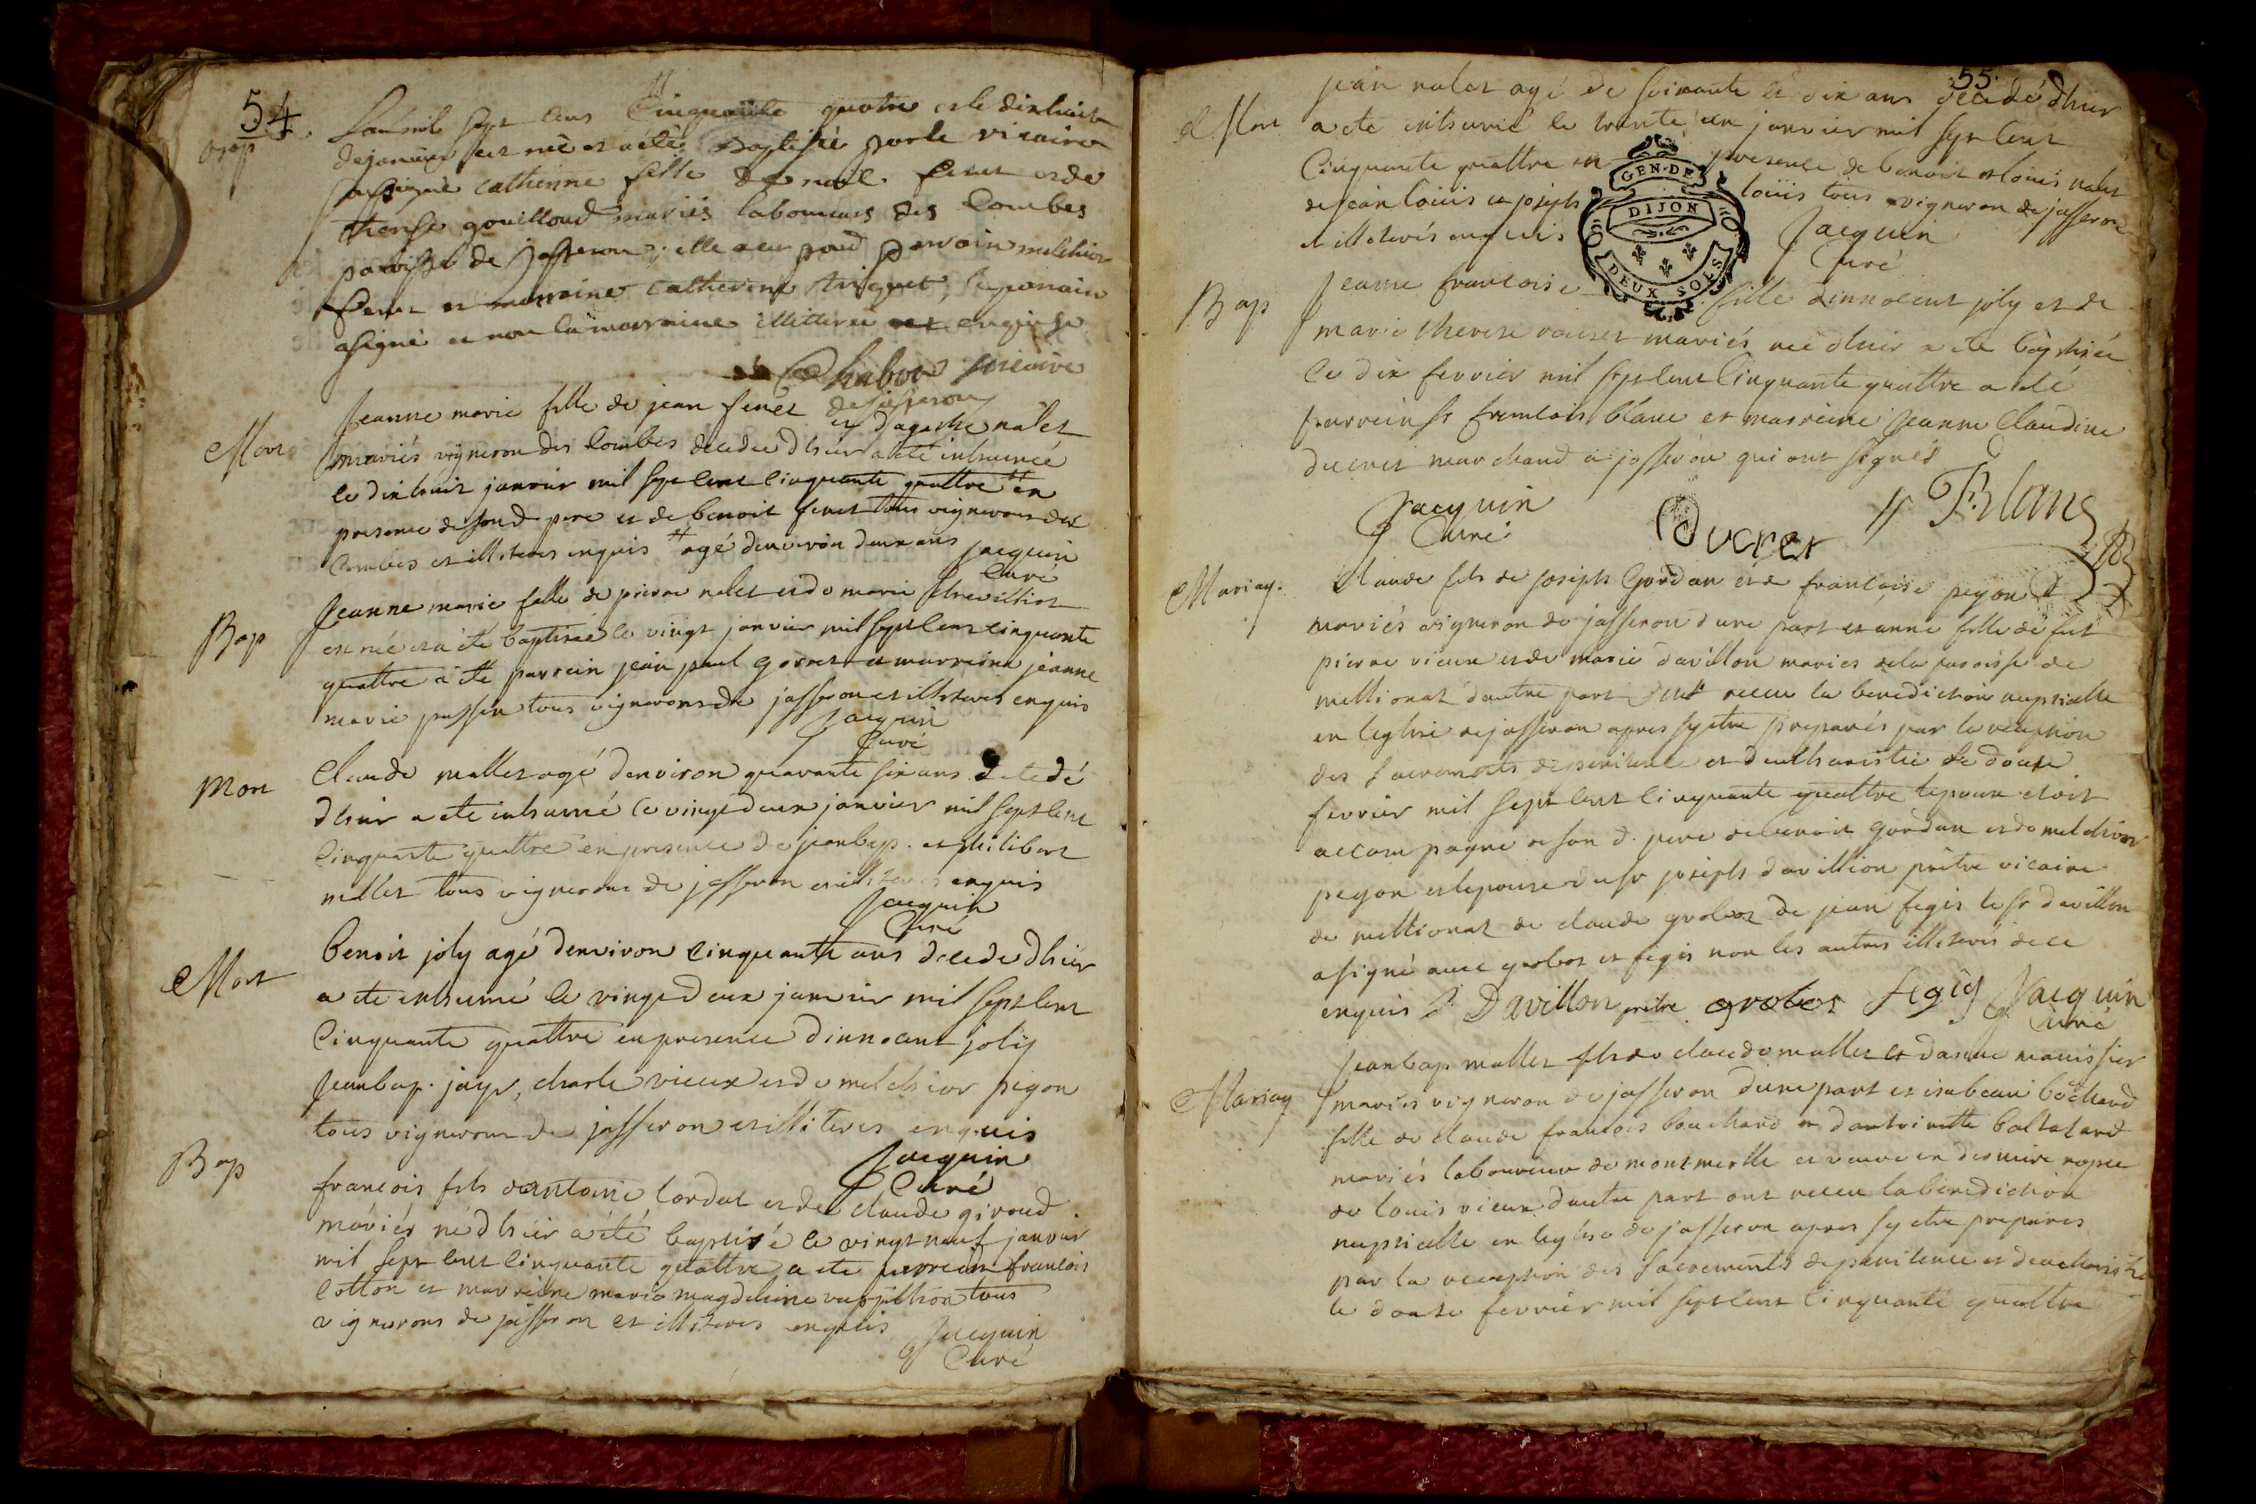 54
Bap
L'an mil sept cens Cinquante quatre et le dixhuit
de janvier est née et a été Baptisée par le vicaire
soussigné catherine fille de noël feret et de
therese gouilloud mariés laboureurs des Combes
paroisse de Jasseron; elle a eu pour parrain melchior
feret et marraine catherine triquet, le parrain
a signé et non la marraine illitterée enquise
Chabot vicaire
Mort
Jeanne marie fille de jean feret de jasseron
et d'agathe nalet
mariés vigneron des Combes decedee dhier a été inhumée
le dixhuit janvier mil sept cent cinquante quattre en
presence de sond pere et de benoit feret tous vignerons des
Combes et illiteres enquis agé denviron deux ans jacquin
Curé
Bap
Jeanne marie fille de pierre nalet et de marie
est née et a été baptisée le vingt janvier mil sept cent cinquante
quattre a été parrein jean paul gorret et marreine jeanne
marie tous vignerons de jasseron et illiteres enquis
Jacquin
Curé
Mort
Claude mallet agé denviron quarante six ans decedé
dhier a ete inhumé le vingt deux janvier mil sept cent
Cinquante quattre en presence de jeanbap. et philibert
mallet tous vignerons de jasseron et illiteres enquis
Jacquin
Curé
Mort
benoit joly agé denviron cinquante ans decede dhier
a ete inhumé le vingt deux janvier mil sept cent
Cinquante quattre en presence dinnocent joly
Jeanbap. jayr, charle vieux et de melchior pegon
tous vignerons de jasseron et illiteres enquis
Jacquin
Curé
Bap
francois fils dantoine cordat et de claude giroud
mariés né dhier a été baptisé le vingt neuf janvier
mil sept cent cinquante quattre a ete parrein francois
Cotton et marreine marie magdeleine tous
vignerons de jasseron et illiteres enquis Jacquin
Curé
55.
Mort
jean nalet agé de soixante et dix ans decedé dhier
a ete inhumé le trente un janvier mil sept cent
Cinquante quattre en presence de benoit et louis nalet
de jean louis et joseph louis tous vigneron de jasseron
et illeterés enquis Jacquin
Curé
GEN·DE
DIJON
DEUX SOLS
Bap
Jeanne francoise fille dinnocent joly et de
marie therese mariés née dhier a ete baptisée
le dix fevrier mil sept cent Cinquante quattre a été
parrein sr francois blanc et marreine Jeanne Claudine
ducret marchand a jasseron qui ont signés
Jacquin
Curé
Ducret
ff Blanc
Mariag.
Claude fils de Joseph Gordan et de francoise pegon
mariés vigneron de jasseron d'une part et anne fille de fut
pierre vieux et de marie davillon mariés de la paroisse de
mellionat dautre part ont receu la benediction nuptialle
en leglise de jasseron apres sy etre preparés par la reception
des sacrements de penitence et deucharistie le douze
fevrier mil sept cent cinquante quattre lepoux etoit
accompagné de son d. pere de benoit gordan et de melchior
pegon et lepouse du sr joseph davillion prêtre vicaire
de mellionat de claude grobot de jean fegis le sr davillon
a signé avec grobot et fegis non les autres illiterés de ce
enquis J. Davillon prêtre grobot fegis Jacquin
Curé
Mariag
Jeanbap mallet fils de claude mallet et danne
mariés vigneron de jasseron d'une part et isabeau bochard
fille de claude francois bouchard et dantoinette
mariés laboureur de montmerle et veuve en derniere nopce
de louis vieux dautre part ont receu la benediction
nuptialle en leglise de jasseron apres sy etre preparés
par la reception des sacrements de penitence et deucharistie
le douze fevrier mil sept cent cinquante quattre